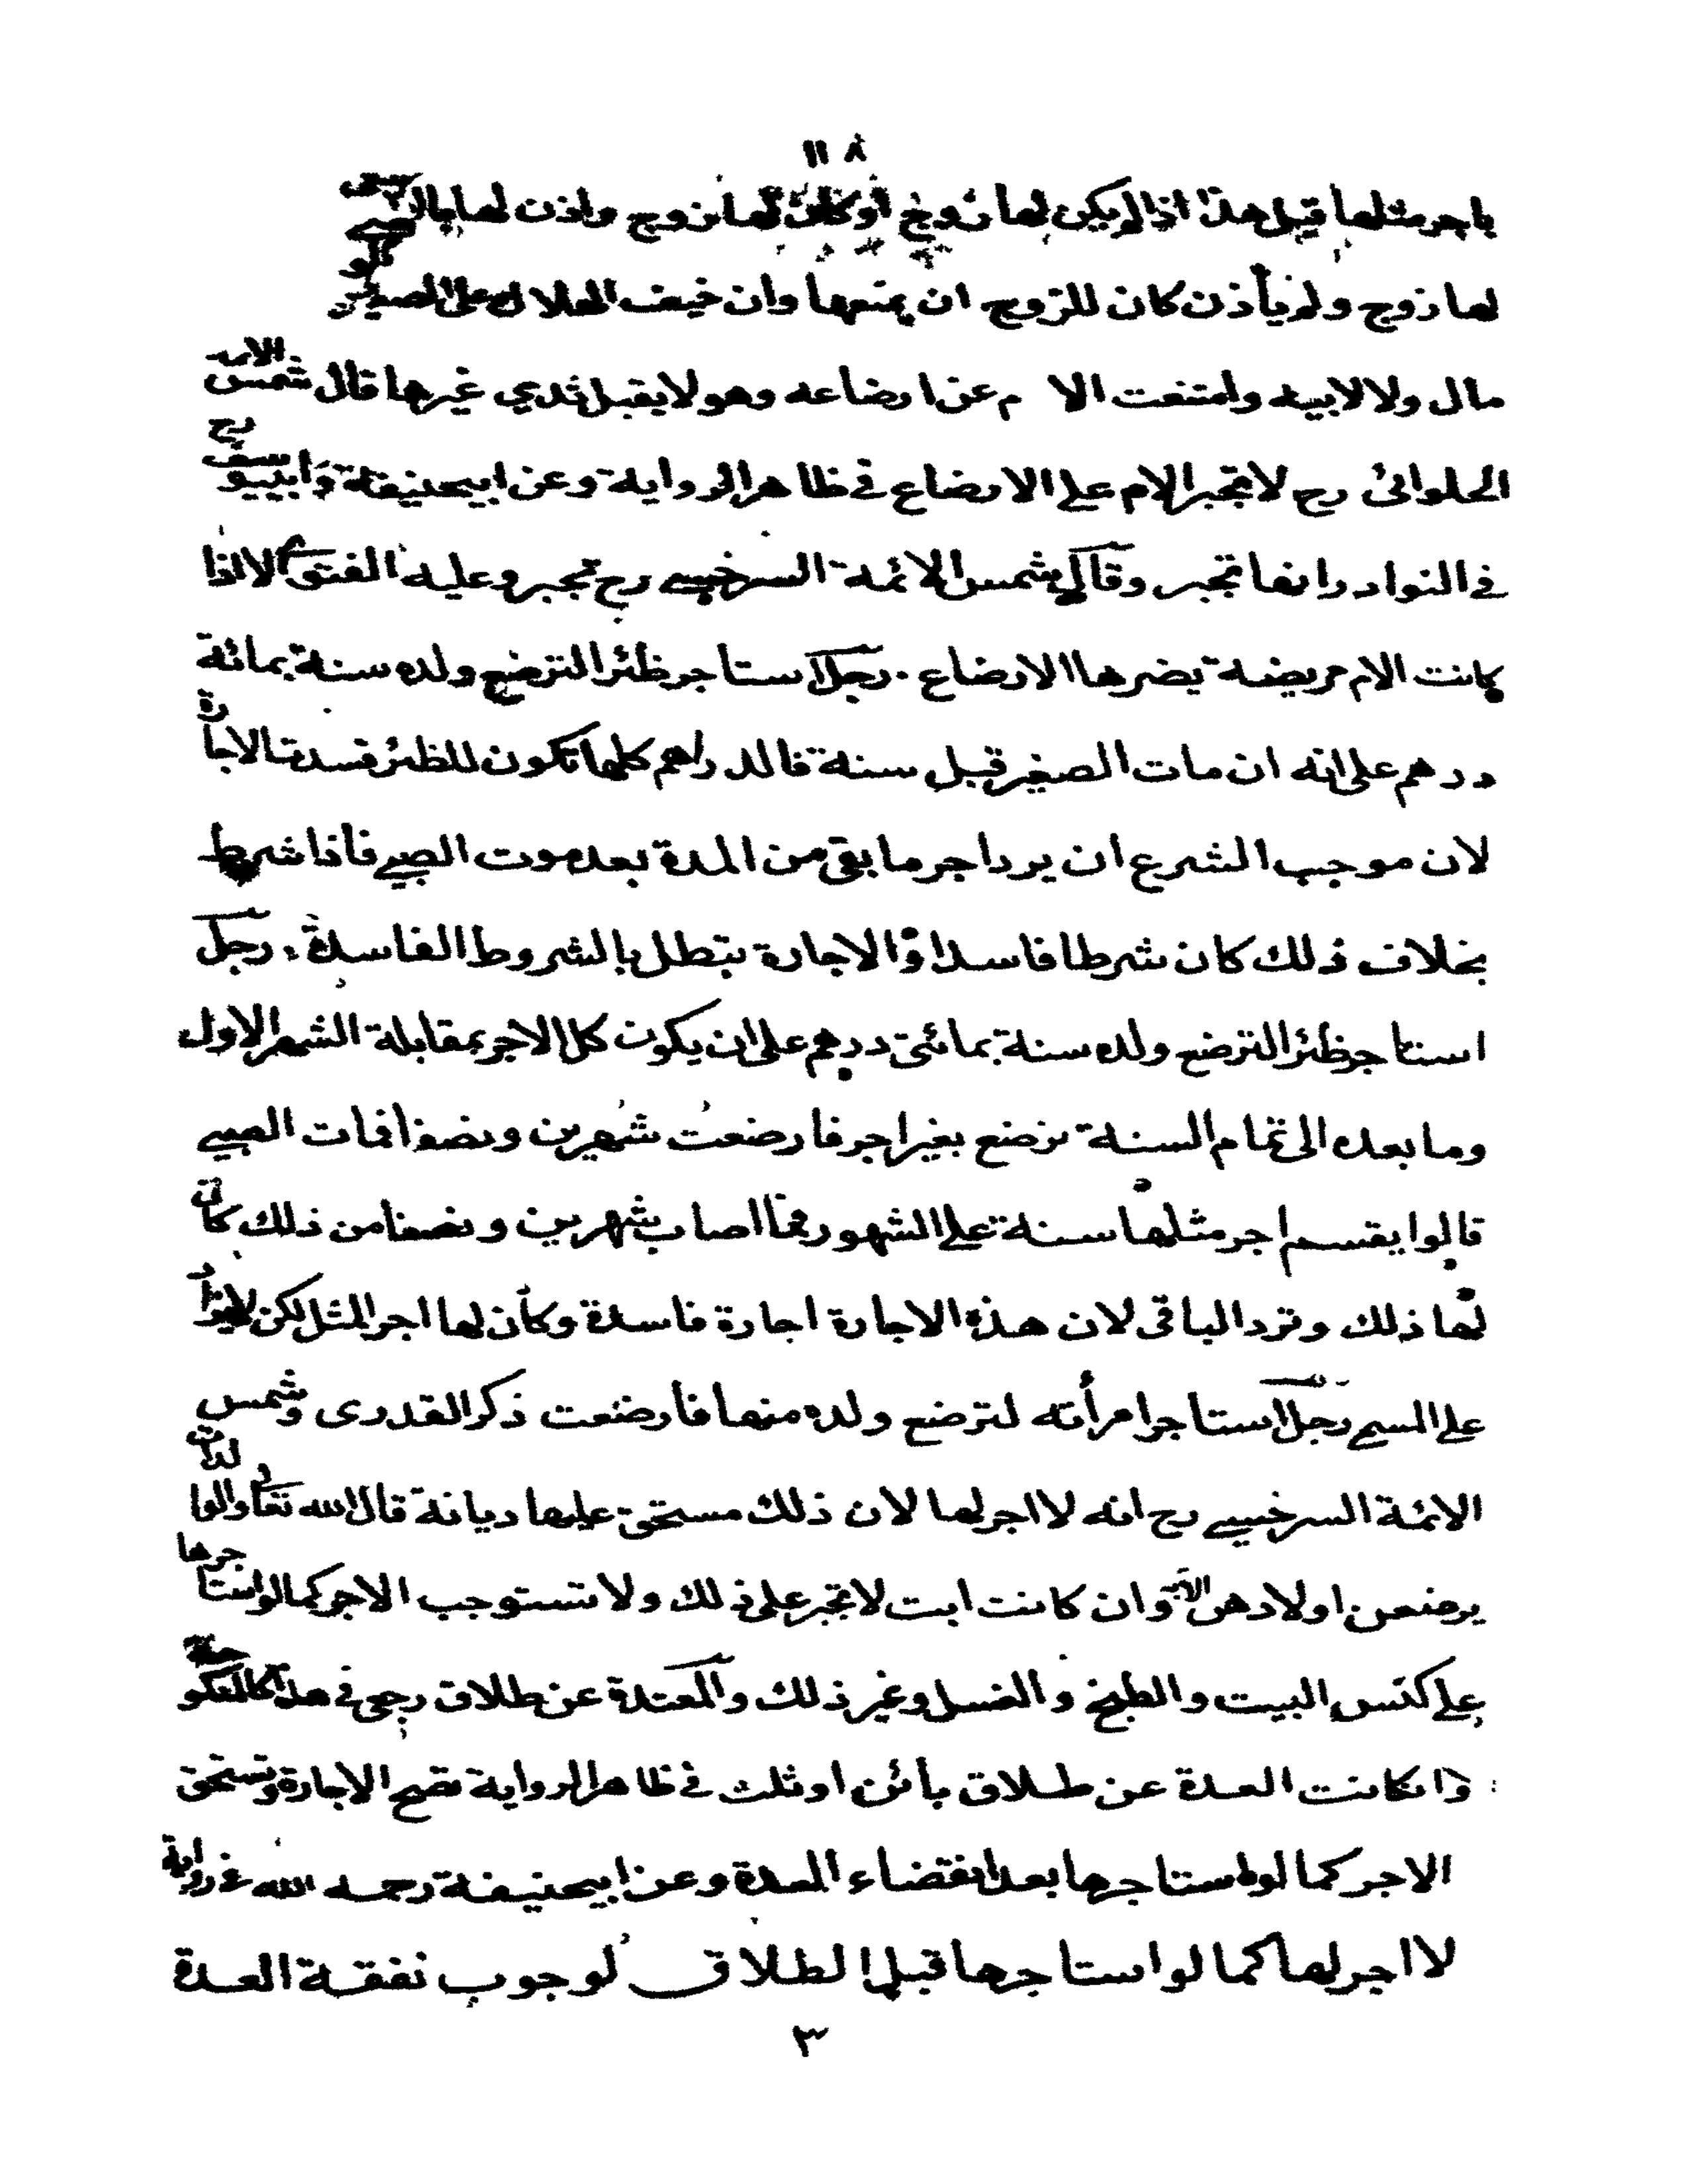 ١١٨
باجر مثلها قيل هذا اذا لم يكن لها زوج او كان لها زوج واذن لها بالرضى
لها زوج ولم يأذن كان للزوج ان يمنعها وان خيف الهلاك على الصغير
مال ولا لابيه وامتنعت الام عن ارضاعه وهو لا يقبل ثدي غيرها قال شمس الايمة
الحلوائى رح لا تجبر الام على الارضاع في ظاهر الرواية وعن ابيحنيفة وابييوسف رح
في النوادر انها تجبر وقال شمس الائمة السرخسي رح تجبر وعليه الفتوى الا اذا
كانت الام مريضة يضرها الارضاع . رجل استاجر ظئرا لترضع ولده سنة بمائة
درهم على انه ان مات الصغير قبل سنة فالدراهم كلها تكون للظئر فسدت الاجارة
لان موجب الشرع ان يرد اجر ما بقى من المدة بعد موت الصبي فأذا شرط
بخلاف ذلك كان شرطا فاسدا و الاجارة تبطل بالشروط الفاسدة . رجل
استاجر ظئرا لترضع ولده سنة بمائتى درهم على ان يكون كل الاجر بمقابلة الشهر الاول
وما بعده الى تمام السنة ترضع بغير اجر فارضعت شهرين ونصفا فمات الصبي
قالوا يقسم اجر مثلها سنة على الشهور فما اصاب شهرين ونصفا من ذلك كان
لها ذلك وترد الباقى لان هذه الاجارة اجارة فاسدة وكأن لها اجر المثل لكن لا يزاد
على المسمى رجل استاجر امرأته لترضع ولده منها فأرضعت ذكر القدرى وشمس
الائمة السرخسي رح انه لا اجر لها لان ذلك مستحق عليها ديانة قال الله تعالى والوالدات
يرضعن اولادهن الآية وان كانت ابت لا تجبر على ذلك ولا تستوجب الاجر كما لو استاجرها
على كنس البيت والطبخ و الغسل وغير ذلك والمعتدة عن طلاق رجعى في هذا كالمنكوحة
وانكانت العدة عن طلاق بأئن او ثلث في ظاهر الرواية تصح الاجارة وتستحق
الاجر كما لو استاجرها بعد انقضاء العدة وعن ابيحنيفة رحمه الله في رواية
لا اجر لها كما لو استاجرها قبل الطلاق لوجوب نفقة العدة
٣